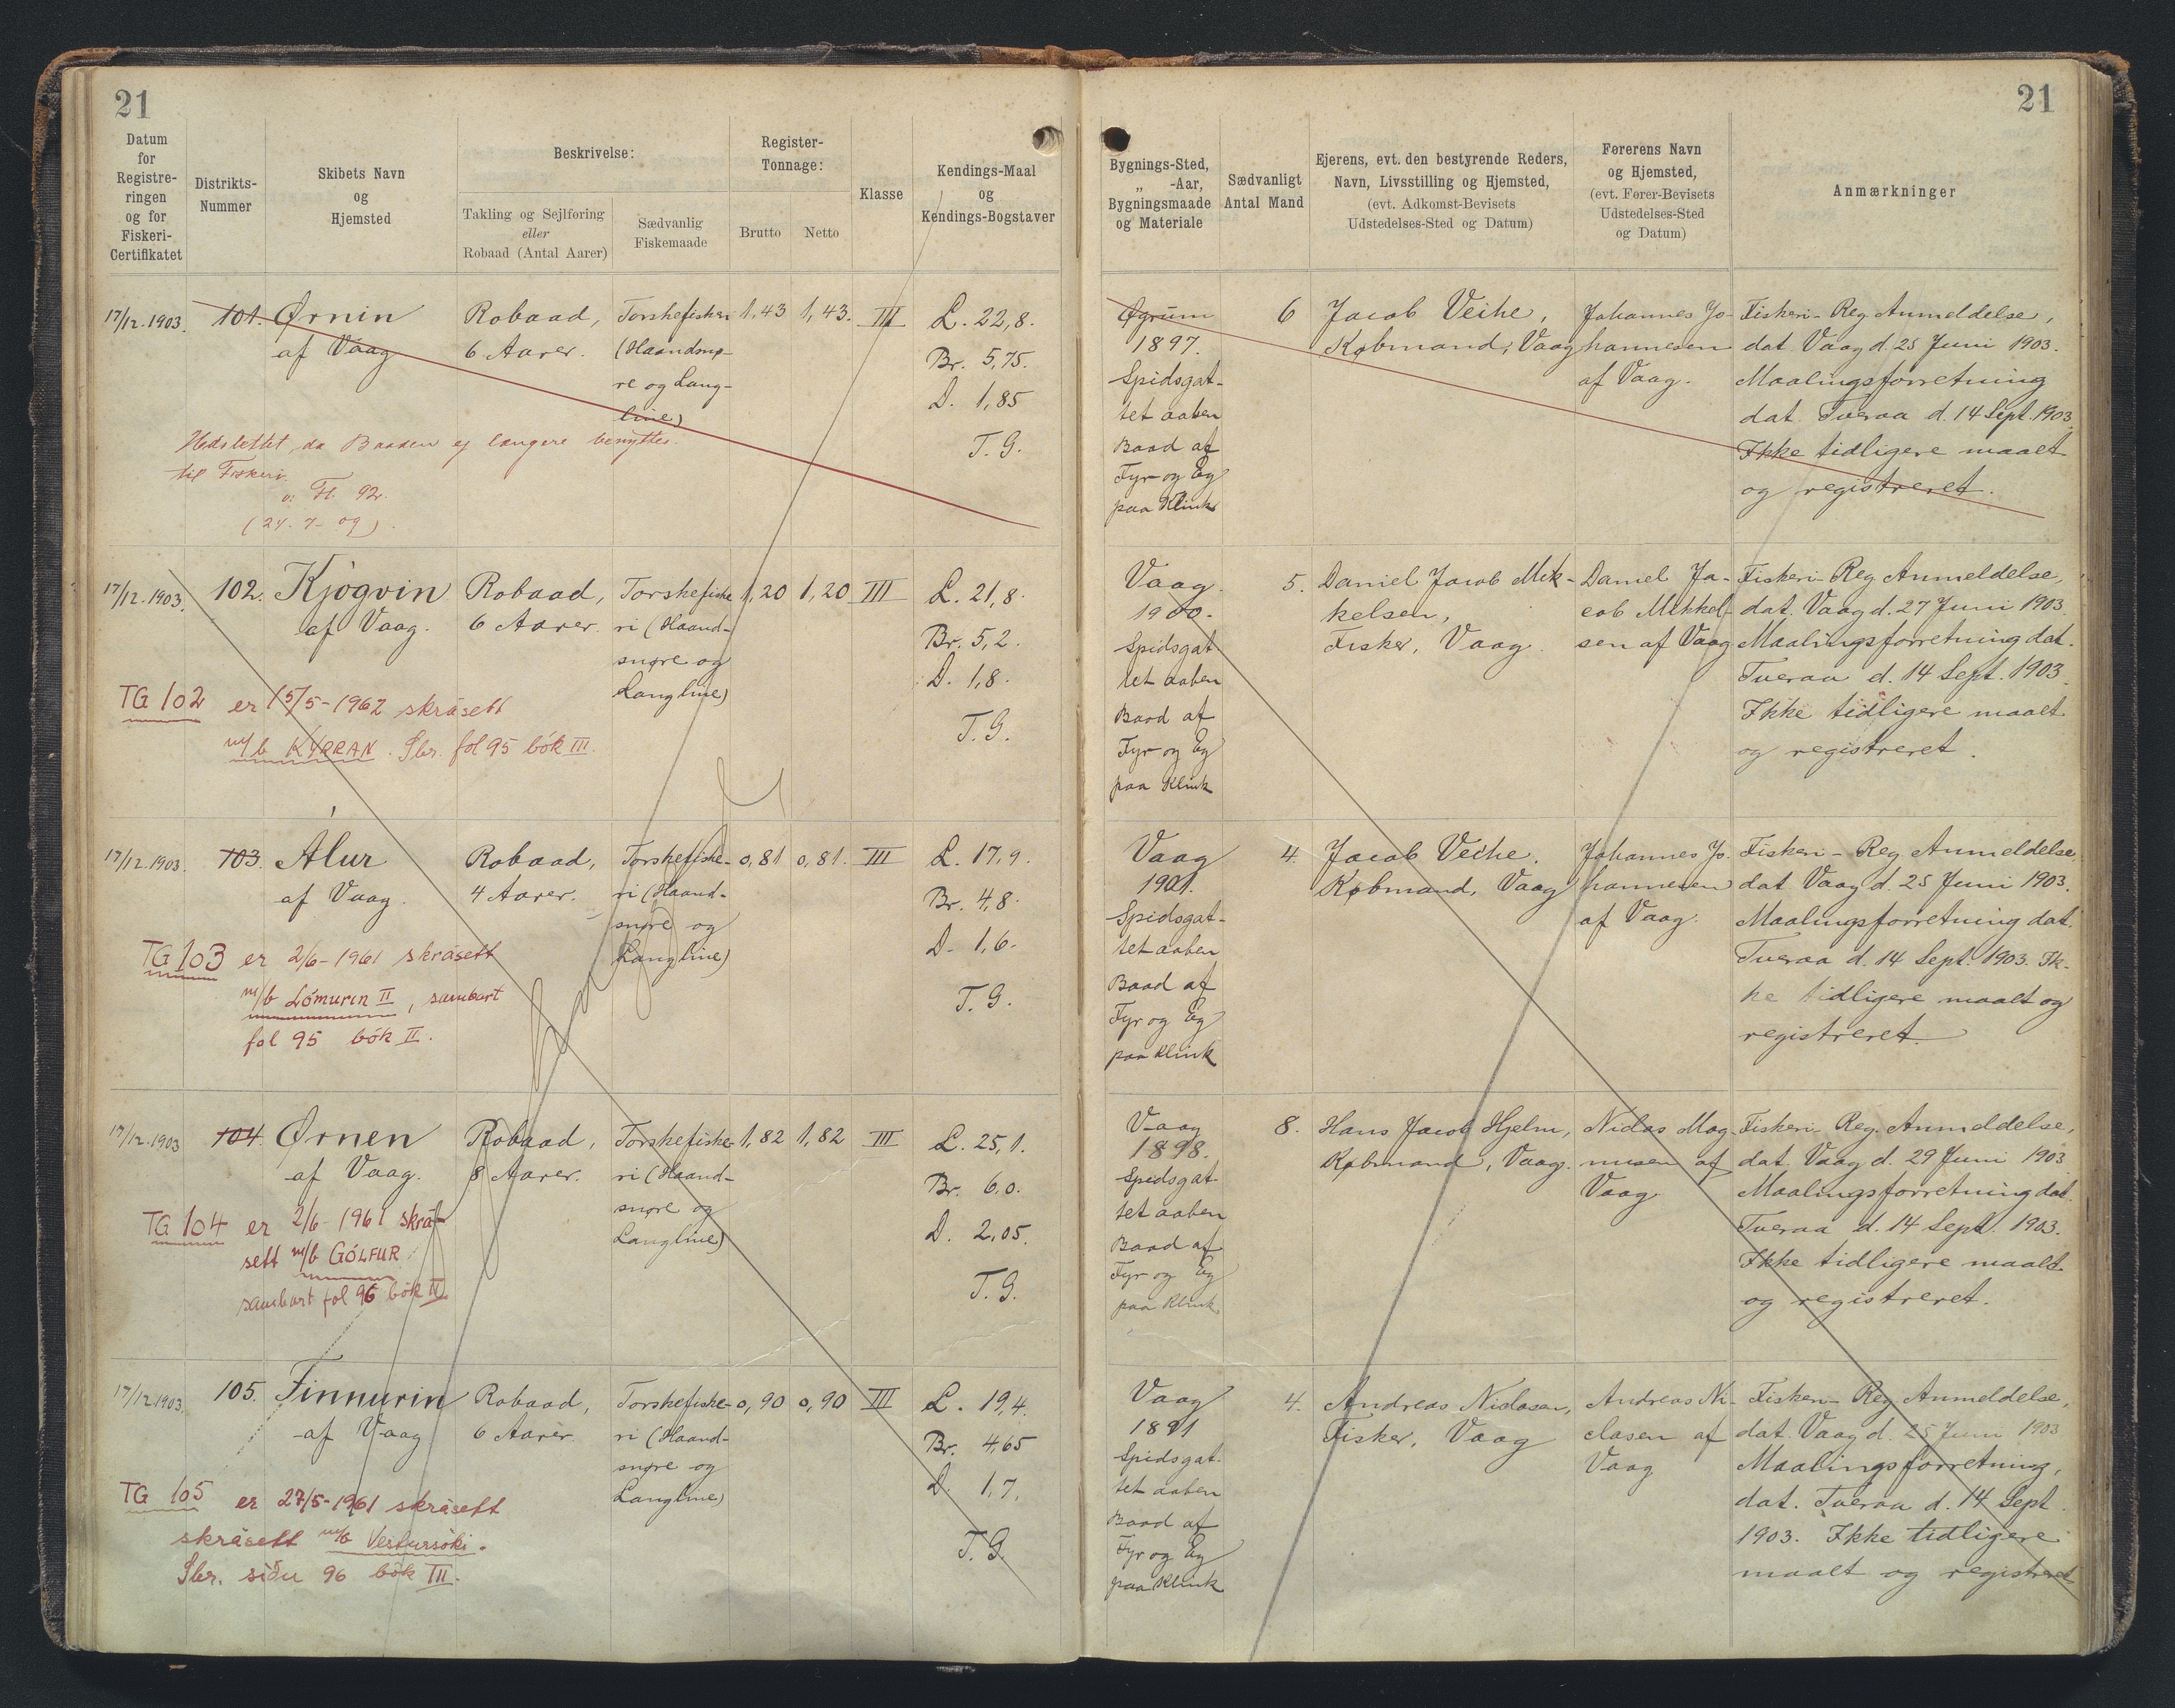 21
21
Datum
for
Registre-
ringen
og for
Fiskeri-
Certifikatet
Distrikts-
Nummer
Skibets Navn
og
Hjemsted
Beskrivelse:
Takling og Sejlføring
eller
Robaad (Antal Aarer)
Sædvanlig
Fiskemaade
Register-
Tonnage:
Brutto
Netto
Klasse
Kendings-Maal
og
Kendings-Bogstaver
Bygnings-Sted,
„ -Aar,
Bygningsmaade
og Materiale
Sædvanligt
Antal Mand
Ejerens, evt. den bestyrende Reders,
Navn, Livsstilling og Hjemsted,
(evt. Adkomst-Bevisets
Udstedelses-Sted og Datum)
Førerens Navn
og Hjemsted,
(evt. Fører-Bevisets
Udstedelses-Sted
og Datum)
Anmærkninger
17/12.1903.
101.
Ørnin
af Vaag
Robaad,
6 Aarer.
Torskefiskeri
(Haandsnø-
re og Lang-
line)
1,43
1,43.
III
L. 22,8.
Br. 5,75.
D. 1,85
T. G.
Udslettet, da Baaden ej længere benyttes
til Fiskeri.
(24. 7- 09).
1897.
Spidsgat-
tet aaben
Baad af
Fyr og Eg
paa Klink
6
Jacob Veihe,
Købmand, Vaag
Johannes Jo-
hannesen
af Vaag.
Fiskeri-Reg Anmeldelse,
dat. Vaag d. 25 Juni 1903.
Maalingsforretning
dat. Tveraa d. 14 Sept. 1903.
Ikke tidligere maalt
og registreret.
17/12.1903.
102.
Kjógvin
af Vaag.
Robaad,
6 Aarer.
Torskefiske
ri (Haand-
snøre og
Langline)
1,20
1,20
III
L. 21,8.
Br. 5,2.
D. 1,8.
T. G.
TG 102 er 15/5-1962 skrásett
m/b KYRRAN. Sbr. fol 95 bók III.
Vaag.
1900.
Spidsgat
tet aaben
Baad af
Fyr og Eg
paa Klink
5.
Daniel Jacob Mik-
kelsen,
Fisker, Vaag.
Daniel Ja-
cob Mikkel-
sen af Vaag
Fiskeri-Reg Anmeldelse,
dat. Vaag d. 27 Juni 1903.
Maalingsforretning dat.
Tveraa d. 14 Sept. 1903.
Ikke tidligere maalt
og registreret.
17/12.1903.
103.
Álur
af Vaag.
Robaad,
4 Aarer.
Torskefiske-
ri (Haand-
snøre og
Langline)
0,81
0,81.
III
L. 17,9.
Br. 4,8.
D. 1,6.
T. G.
TG 103 er 2/6-1961 skrásett
m/b Lómurin II, sambart
fol 95 bók II.
Vaag
1901.
Spidsgat-
tet aaben
Baad af
Fyr og Eg
paa Klink
4
Jacob Veihe.
Købmand, Vaag
Johannes Jo-
hannesen
af Vaag.
Fiskeri-Reg Anmeldelse
dat Vaag d. 25 Juni 1903.
Maalingsforretning dat.
Tveraa d. 14 Sept. 1903. Ik-
ke tidligere maalt og
registreret.
17/12.1903
104.
Ørnen
af Vaag.
Robaad,
8 Aarer.
Torskefiske-
ri (Haand-
snøre og
Langline)
1,82
1,82
III
L. 25,1.
Br. 6,0.
D. 2,05.
T. G.
TG 104 er 2/6-1961 skrá-
sett m/b GÓLFUR
sambart fol 96 bók II
Vaag
1898.
Spidsgat-
tet aaben
Baad af
Fyr og Eg
paa Klink
8.
Hans Jacob Hjelm,
Købmand, Vaag.
Niclas Mag-
nusen af
Vaag
Fiskeri-Reg. Anmeldelse,
dat. Vaag d. 29 Juni 1903
Maalingsforretning dat.
Tveraa d. 14 Sept. 1903.
Ikke tidligere maalt
og registreret.
17/12.1903.
105.
Finnurin
af Vaag
Robaad,
6 Aarer.
Torskefiske-
ri (Haand-
snøre og
Langline)
0,90
0,90
III
L. 19,4.
Br. 4,65
D. 1,7.
T. G.
TG 105 er 27/5-1961 skrásett
skrásett m/b Vestursøki.
Sbr. síðu 96 bók III.
Vaag
1891
Spidsgat-
tet aaben
Baad af
Fyr og Eg
paa Klink
4.
Andreas Niclasen,
Fisker, Vaag
Andreas Ni-
clasen af
Vaag
Fiskeri-Reg Anmeldelse,
dat. Vaag d. 25 Juni 1903
Maalingsforretning,
dat. Tveraa d. 14 Sept.
1903. Ikke tidligere
maalt og registreret